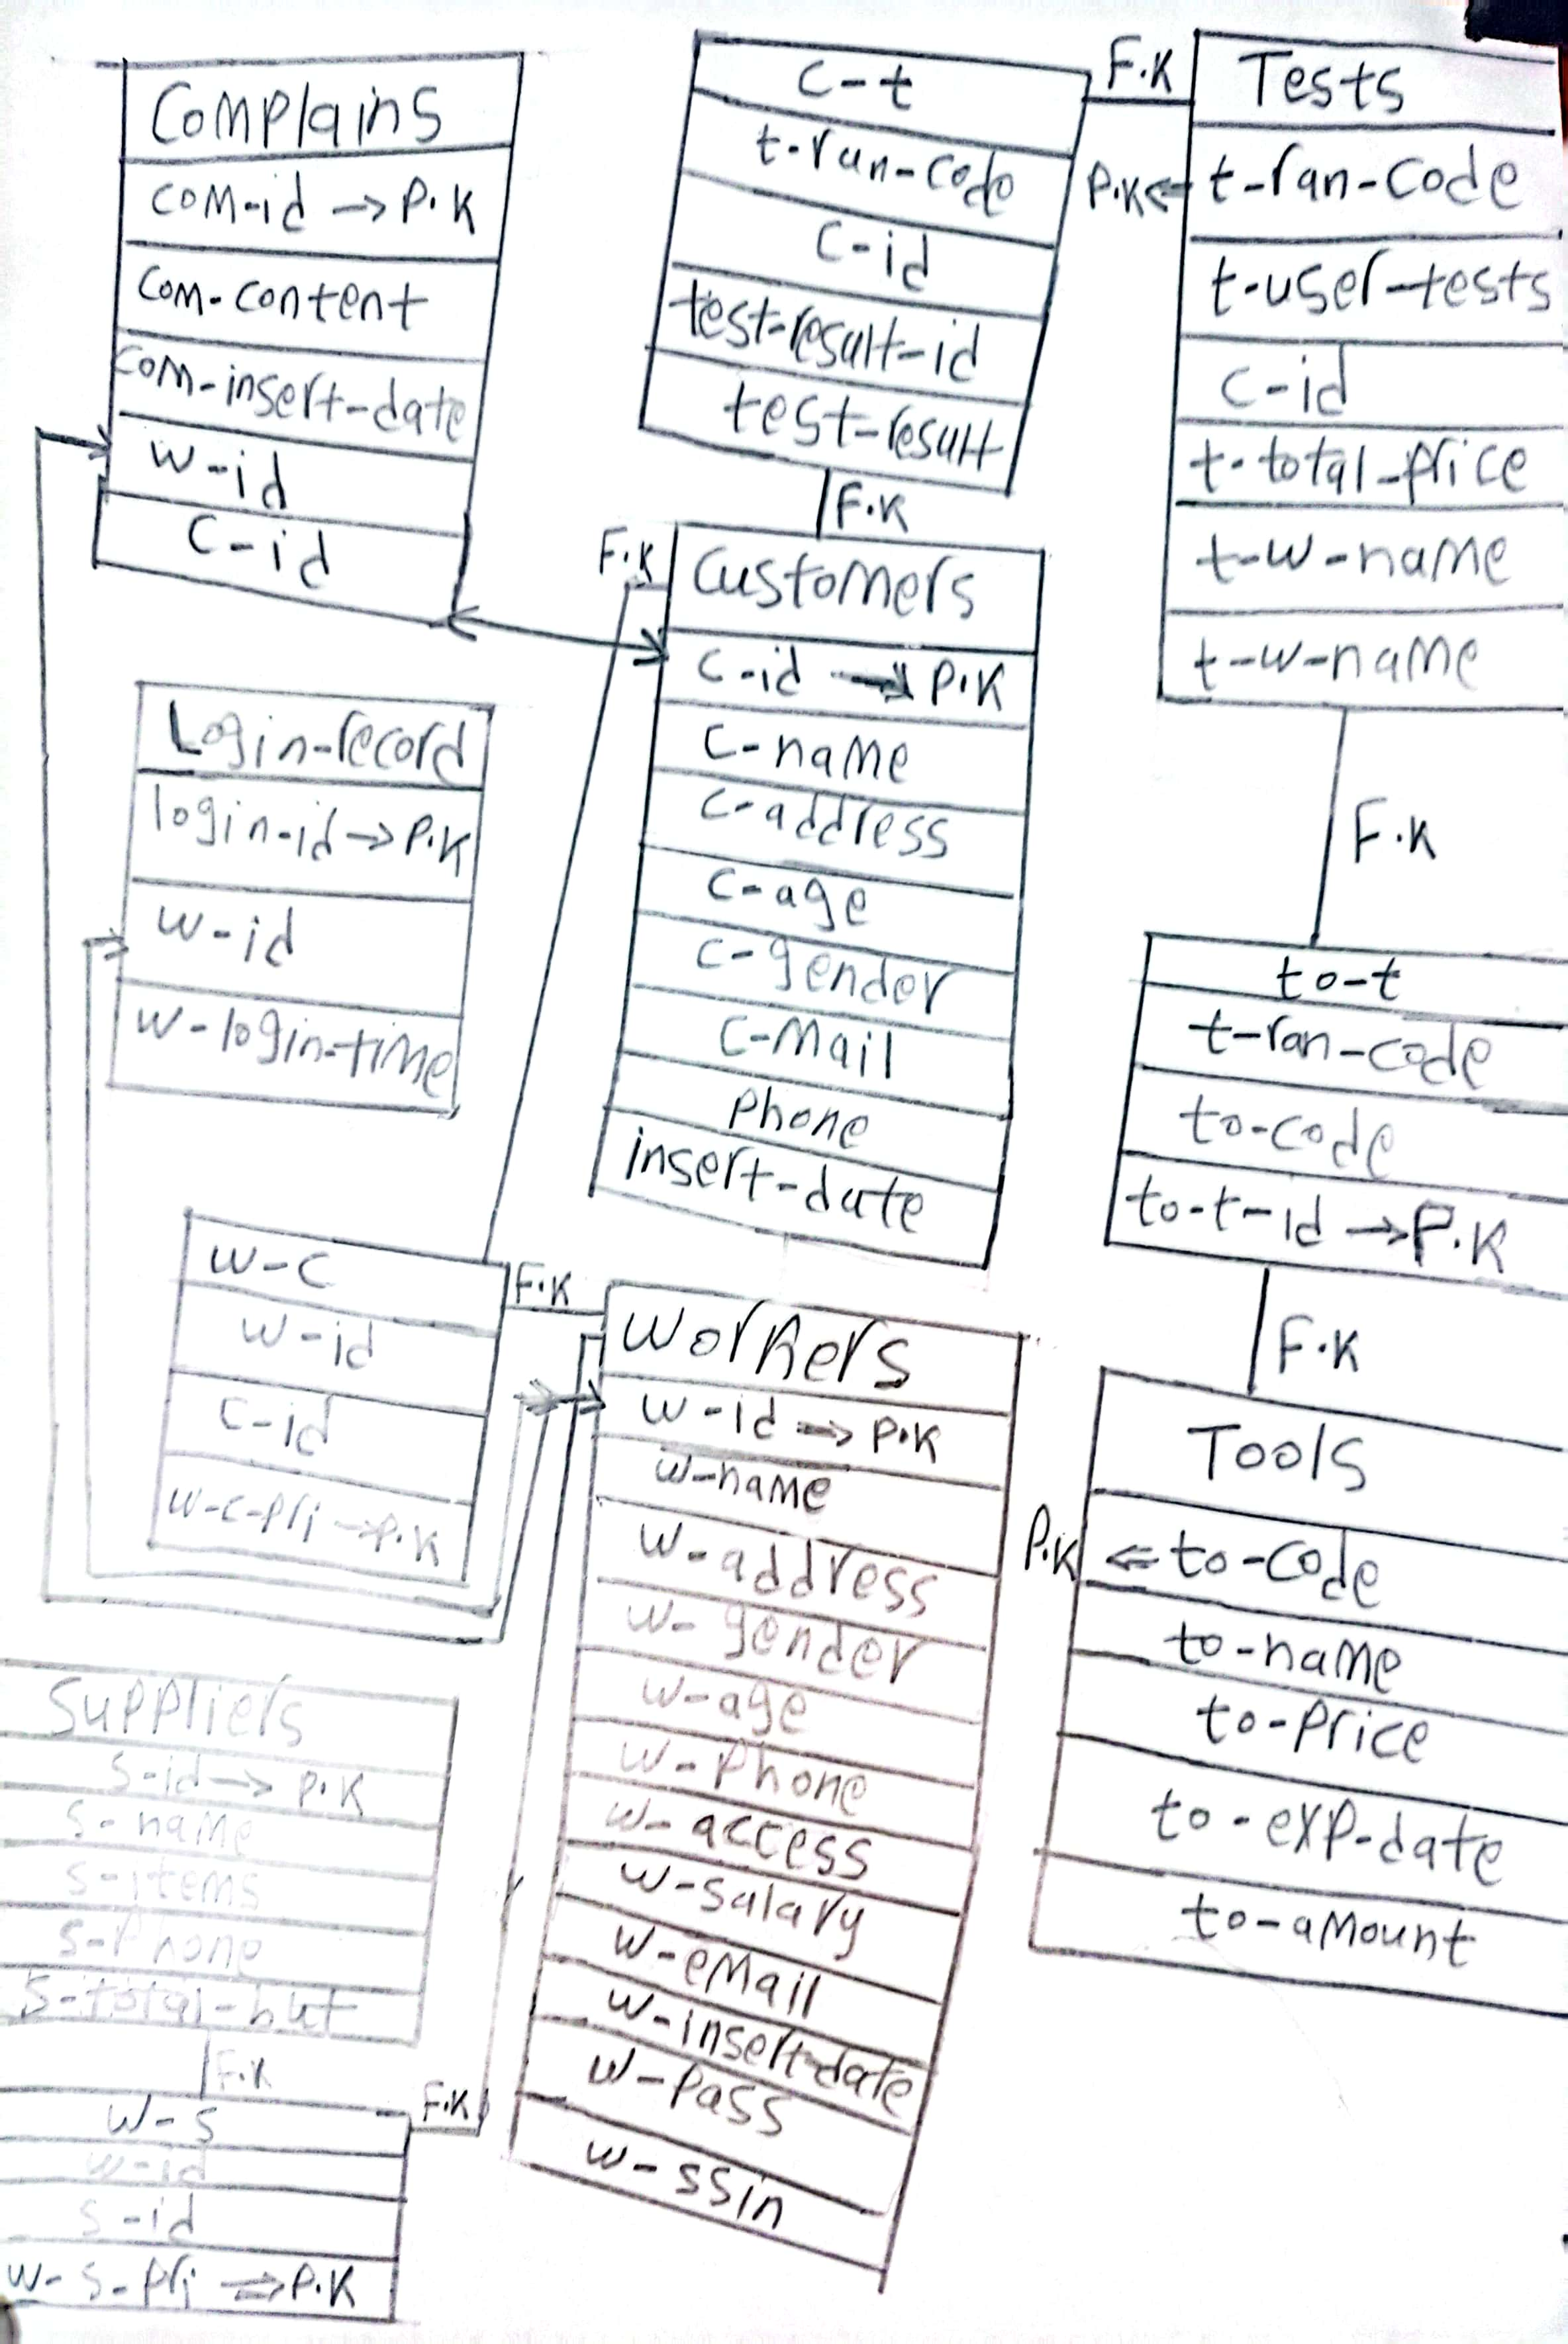 Complains
com-id → P.K
com-content
com-insert-date
w-id
c-id
c-t
t-ran-code
c-id
test-result-id
test-result
F.K
Tests
P.K ← t-ran-code
t-user-tests
c-id
t-total-price
t-w-name
t-w-name
F.K
F.K
Customers
c-id → P.K
c-name
c-address
c-age
c-gender
c-Mail
Phone
insert-date
Login-record
login-id → P.K
w-id
w-login-time
F.K
to-t
t-ran-code
to-code
to-t-id → P.K
F.K
w-c
w-id
c-id
w-c-pri → P.K
F.K
Workers
w-id → P.K
w-name
w-address
w-gender
w-age
w-Phone
w-access
w-salary
w-eMail
w-insert-date
w-Pass
w-ssin
Tools
P.K ⇐ to-code
to-name
to-Price
to-exp-date
to-amount
Suppliers
s-id → P.K
s-name
s-items
s-Phone
s-total-but
F.K
F.K
w-s
w-id
s-id
w-s-pri ⇒ P.K